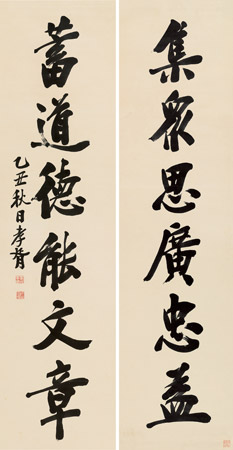 集衆思廣忠益
蓄道德能文章
乙丑秋日孝胥